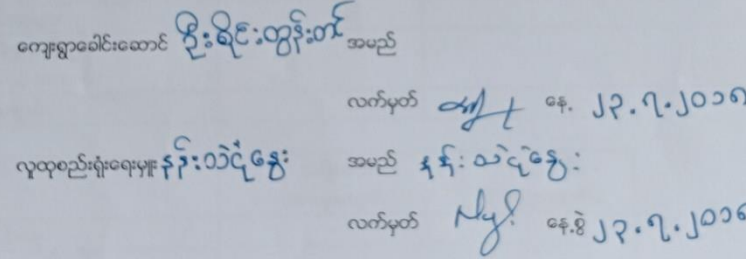 ကျေးရွာခေါင်းဆောင် ဦးစိုင်းထွန်းတင် အမည်
လက်မှတ် နေ့. ၂၃.၇.၂၀၁၈
လူထုစည်းရုံးရေးမှူး နန်းသဲငုံနွေး အမည် နန်းသဲငုံနွေး
လက်မှတ် နေ့စွဲ ၂၃.၇.၂၀၁၈